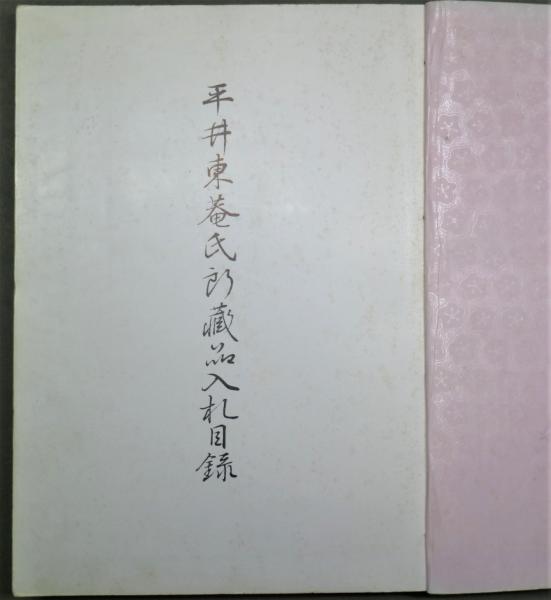 平井東菴氏所藏品入札目録